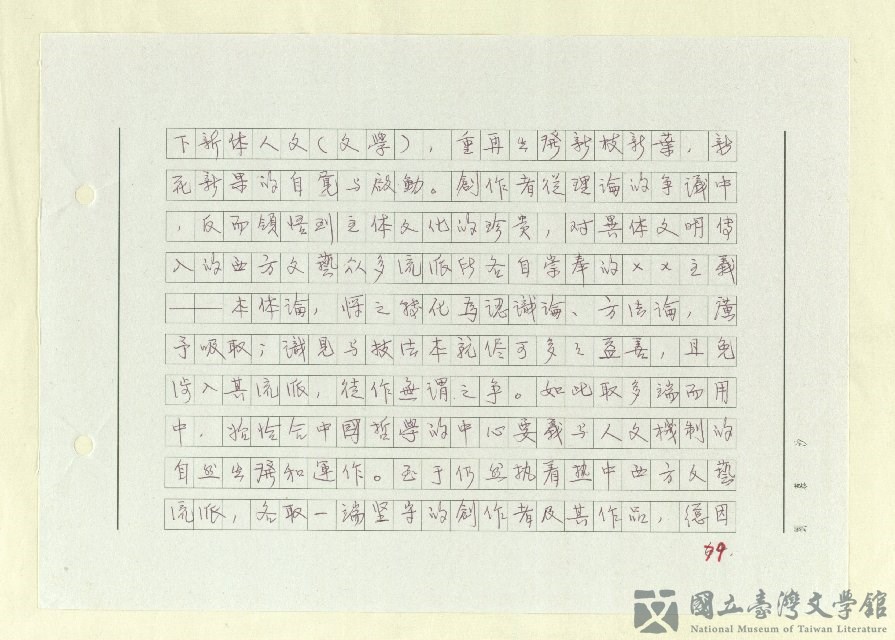 下新体人文(文學),重再出發新枝新葉,新
花新果的自覓与啟動。創作者從理論的争議中
,反而領悟到主体文化的珍贵,对異体文明傳
入的西方文藝众多流派所各自崇奉的××主義
——本体論,將之轉化為認識論、方法論,儘
予吸取;識見与技法本就侭可多多益善,且免
涉入其流派,徒作無謂之争。如此取多端而用
中.恰恰合中國哲學的中心要義与人文機制的
自然出發和運作。至于仍然执着热中西方文藝
流派,各取一端坚守的創作者及其作品,總因
99.
國立臺灣文學館
National Museum of Taiwan Literature